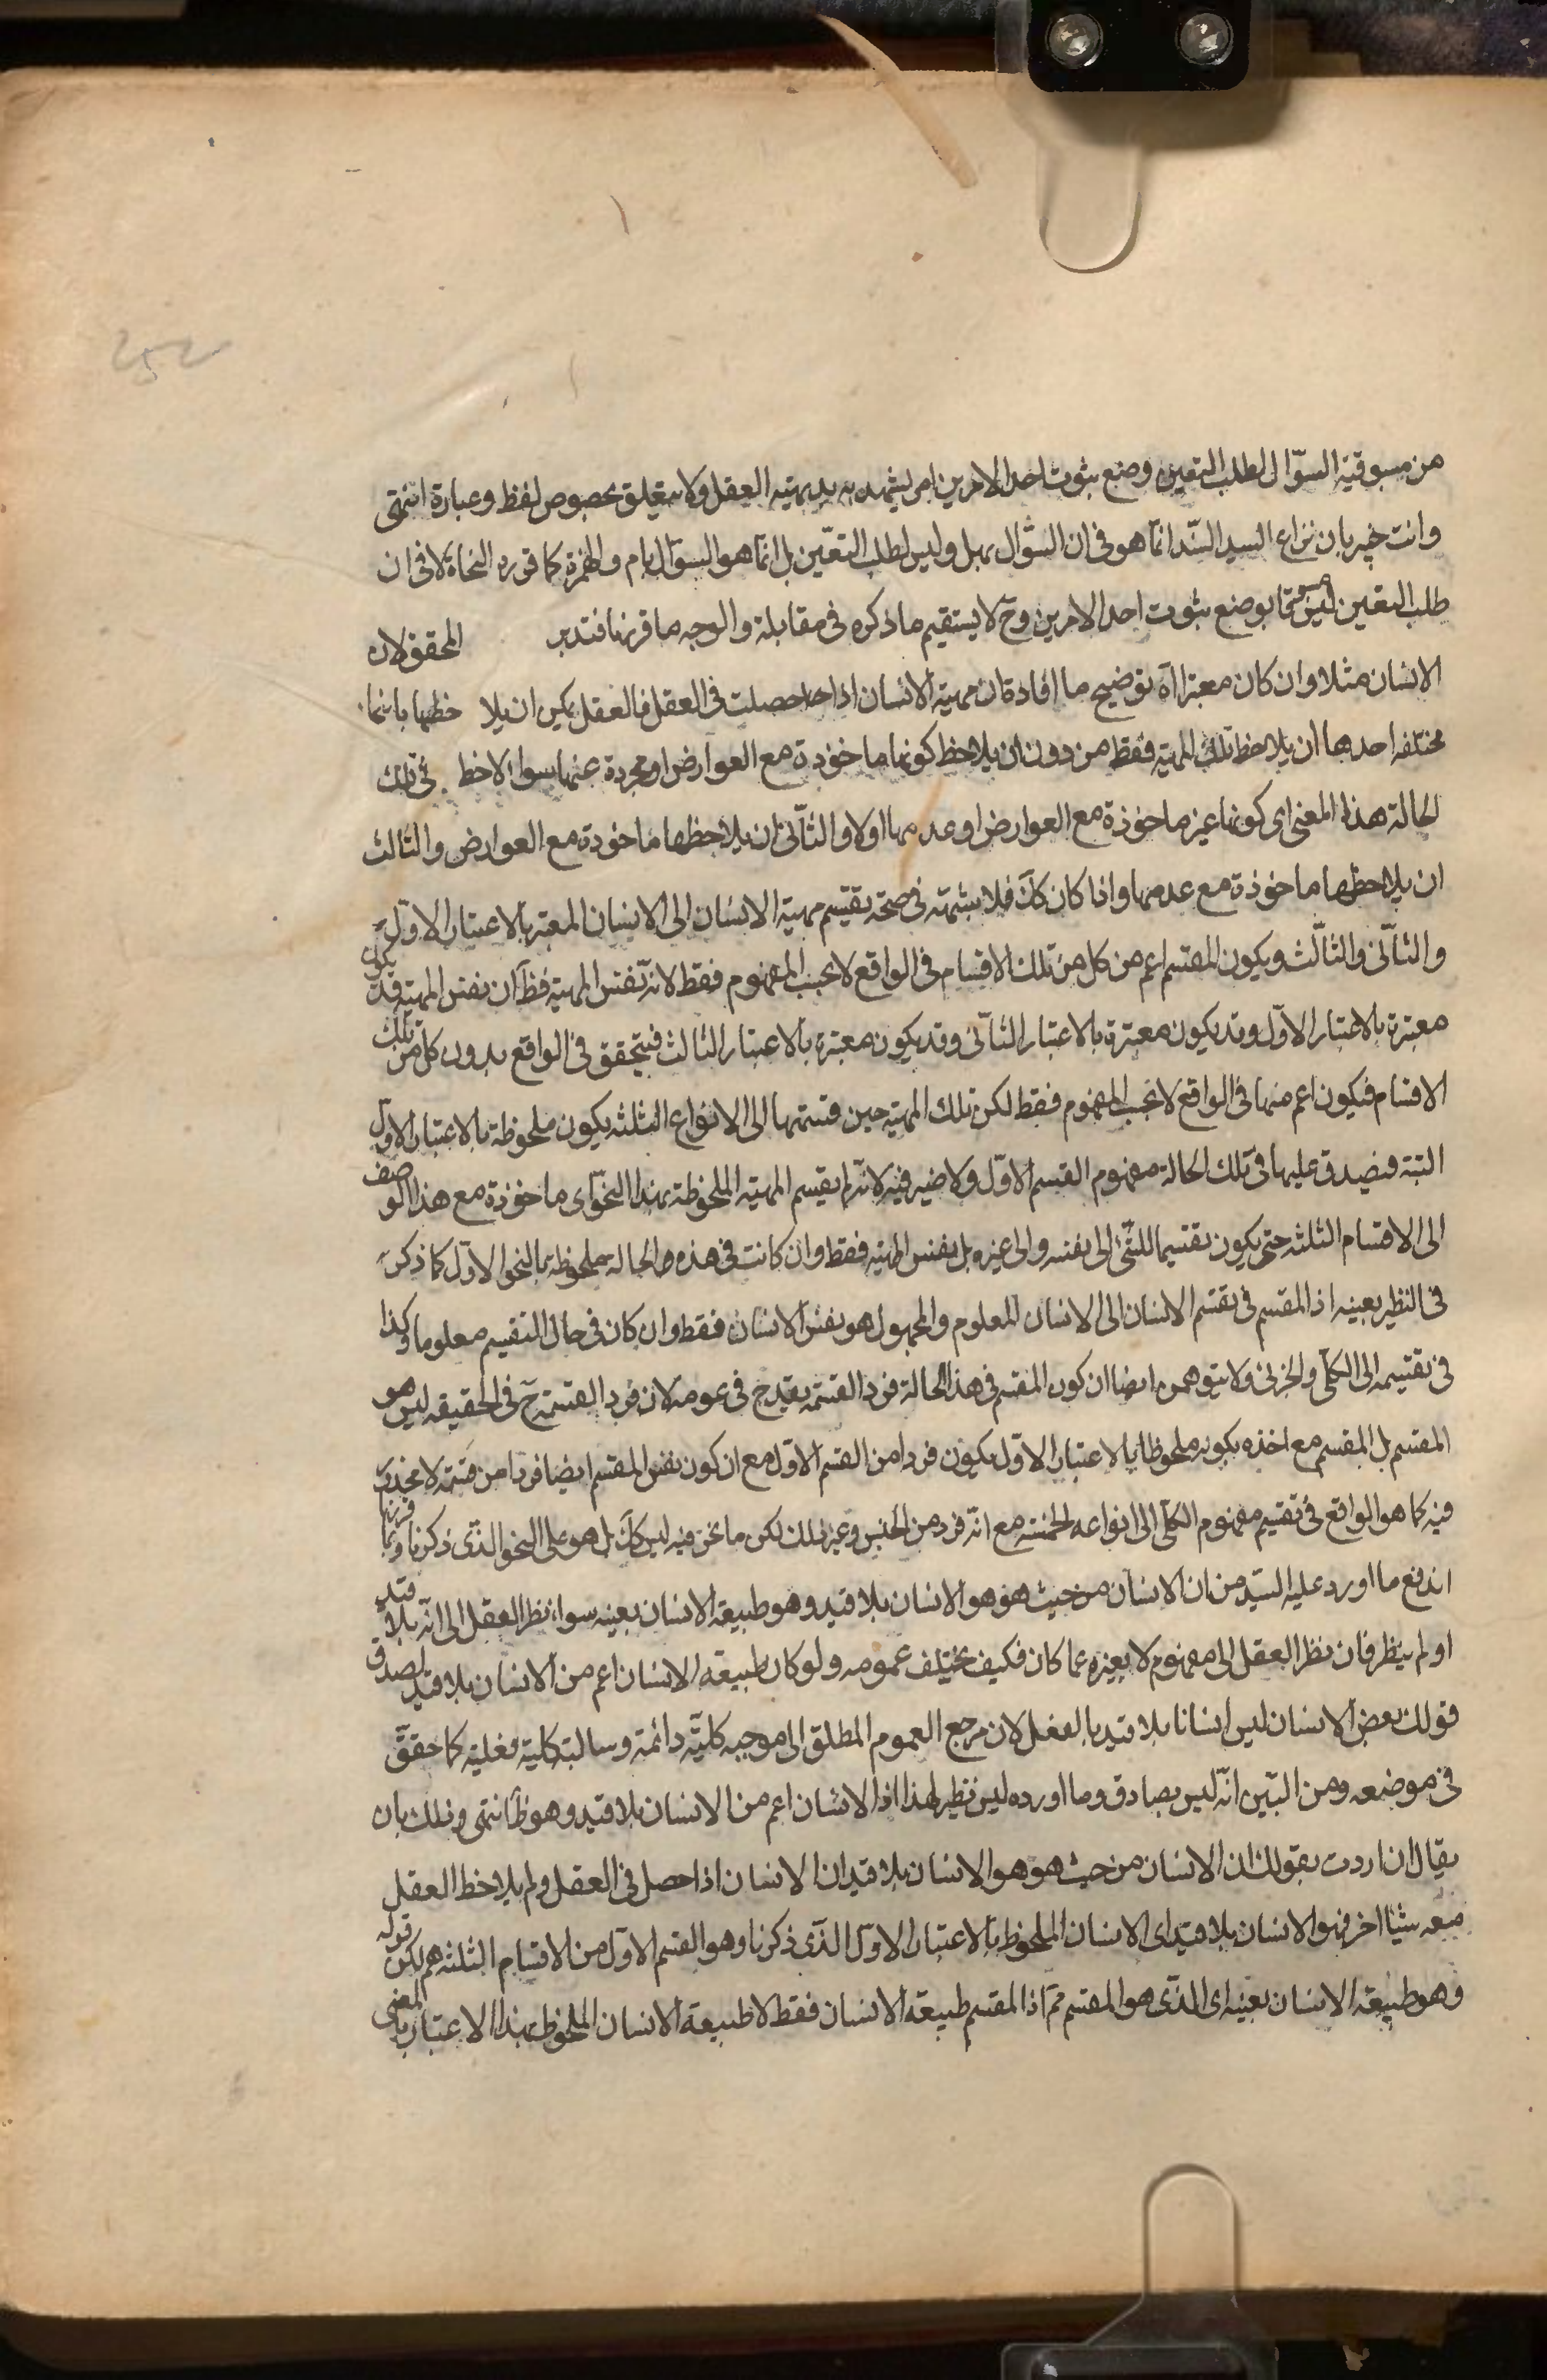 من مسبوقية السؤال لطلب التعين وضع ثبوت احد الامرين امر يشهد به بديهية العقل ولا يتعلق بخصوص لفظ وعبارة انتهى
وانت خبير بان نزاع السيد السند انما هو فى ان السؤال بهل وليس لطلب التعين بل انما هو السؤال بام والهمزة كما قرره النحاة لا فى ان
طلب التعين ليس مسبوقا بوضع ثبوت احد الامرين وح لا يستقيم ما ذكره فى مقابلة والوجه ما قررنا فتدبر المحقق لان
الانسان مثلا وان كان معتبرا اه توضيح ما افاده ان مهية الانسان اذا حصلت فى العقل فالعقل يمكن ان يلاحظها بانحاء
مختلفه احدها ان يلاحظ تلك المهية فقط من دون ان يلاحظ كونها ماخوذة مع العوارض او مجردة عنها سواء لاحظ فى تلك
الحالة هذا المعنى اى كونها غير ماخوذة مع العوارض او عدمها اولا والثانى ان يلاحظها ماخوذة مع العوارض والثالث
ان يلاحظها ماخوذة مع عدمها واذا كان كك فلا شبهة فى صحة تقسيم مهية الانسان الى الانسان المعتبر بالاعتبار الاول
والثانى والثالث ويكون المقسم اعم من كل من تلك الاقسام فى الواقع لا بحسب المفهوم فقط لانه نفس المهية فظ ان نفس المهية قد يكون
معتبرة بالاعتبار الاول وقد يكون معتبرة بالاعتبار الثانى وقد يكون معتبرة بالاعتبار الثالث فيتحقق فى الواقع بدون كل من تلك
الاقسام فيكون اعم منها فى الواقع لا بحسب المفهوم فقط لكن تلك المهية حين قسمتها الى الانواع الثلثه يكون ملحوظة بالاعتبار الاول
البتة فيصدق عليها فى تلك الحالة مفهوم القسم الاول ولا ضير فيه لانه لم يقسم المهية الملحوظة بهذا النحو اى ماخوذة مع هذا الوصف
الى الاقسام الثلثه حتى يكون تقسيما للشئ الى نفسه والى غيره بل نفس المهية فقط وان كانت فى هذه الحالة ملحوظة بالنحو الاول كما ذكر
فى النظير بعينه اذ المقسم فى تقسيم الانسان الى الانسان المعلوم والمجهول هو نفس الانسان فقط وان كان فى حال التقسيم معلوما وكذا
فى تقسيمه الى الكلى والجزئى ولا يتوهمن ايضا ان كون المقسم فى هذا الحالة فرد القسمة يقدح فى عمومه لان فرد القسمة ح فى الحقيقه ليس هو
المقسم بل المقسم مع اخذه بكونه ملحوظا بالاعتبار الاول يكون فردا من القسم الاول مع ان كون نفس المقسم ايضا فردا من قسمه لا محذور
فيه كما هو الواقع فى تقسيم مفهوم الكلى الى انواعه الخمسة مع انه فرد من الجنس وغير ذلك لكن ما نحن فيه ليس كك بل هو على النحو الذى ذكرنا وبما قررنا
اندفع ما اورد عليه السيد من ان الانسان من حيث هو هو الانسان بلا قيد وهو طبيعة الانسان بعينه سواء نظر العقل الى انه بلا قيد
او لم ينظر فان نظر العقل الى مفهوم لا يغيره عما كان فكيف يختلف عمومه ولو كان طبيعة الانسان اعم من الانسان بلا قيد لصدق
قولك بعض الانسان ليس انسانا بلا قيد بالفعل لان مرجع العموم المطلق الى موجبه كلية دائمة وسالبة كلية فعلية كما حقق
فى موضعه ومن البين انه ليس بصادق وما اورده ليس نظير لهذا اذ الانسان اعم من الانسان بلا قيد وهو ظ انتهى وذلك بان
يقال ان اردت بقولك ان الانسان من حيث هو هو الانسان بلا قيد ان الانسان اذا حصل فى العقل ولم يلاحظ العقل
معه شيئا اخر فهو الانسان بلا قيد اى الانسان الملحوظ بالاعتبار الاول الذى ذكرنا وهو القسم الاول من الاقسام الثلثه فم لكن قوله
وهو طبيعة الانسان بعينه اى الذى هو المقسم مم اذ المقسم طبيعة الانسان فقط لا طبيعة الانسان الملحوظ بهذا الاعتبار بالمعنى